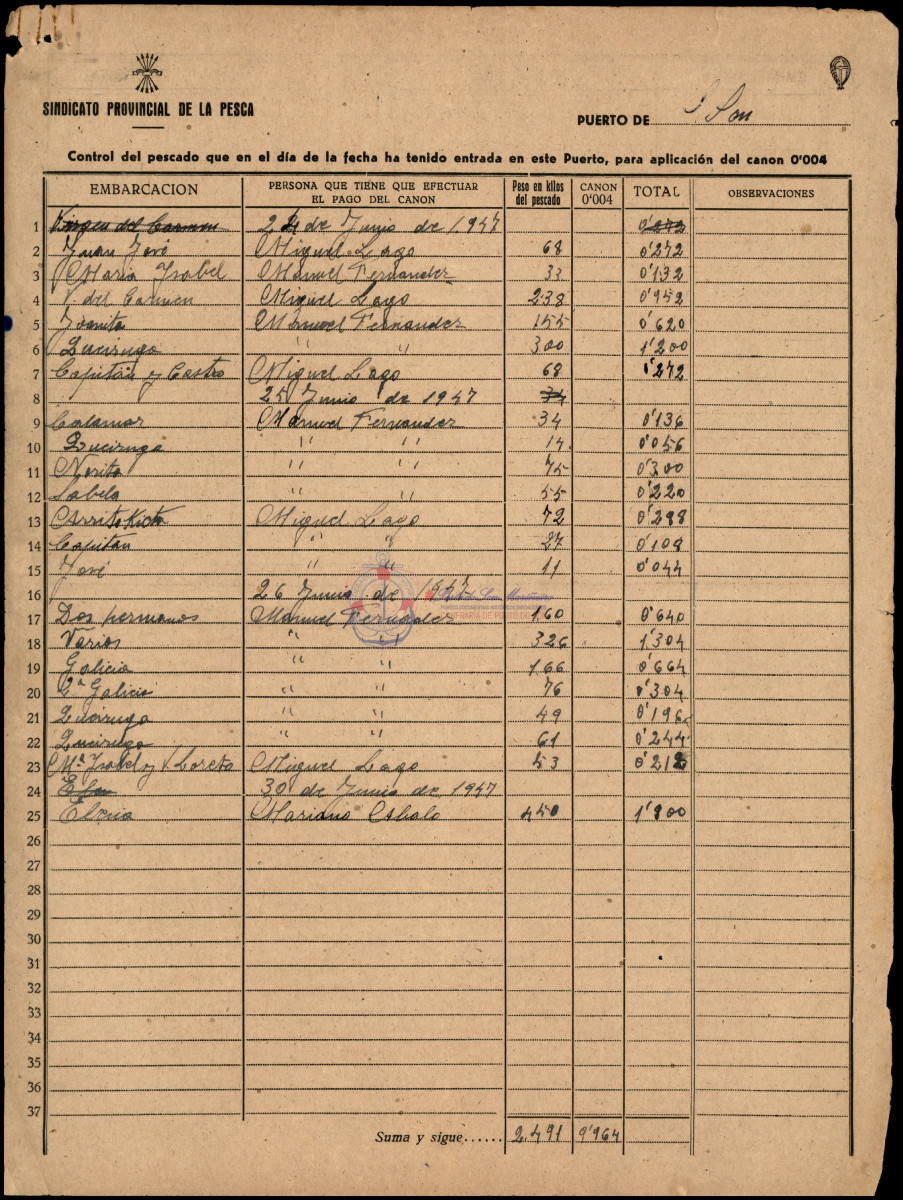 SINDICATO PROVINCIAL DE LA PESCA
PUERTO DE Son
Control del pescado que en el día de la fecha ha tenido entrada en este Puerto, para aplicación del canon 0'004
EMBARCACION PERSONA QUE TIENE QUE EFECTUAR EL PAGO DEL CANON Peso en kilos del pescado CANON 0'004 TOTAL OBSERVACIONES
1 Virgen del Carmen 24 de Junio de 1947 0'272
2 Juan José Miguel Lago 68 0'272
3 Maria Isabel Manuel Fernandez 33 0'132
4 V. del Carmen Miguel Lago 238 0'952
5 Juanita Manuel Fernandez 155 0'620
6 " " 300 1'200
7 Capitán y Castro Miguel Lago 68 0'272
8 25 Junio de 1947 34
9 Calamar Manuel Fernandez 34 0'136
10 " " 14 0'056
11 Norita " " 75 0'300
12 Sabela " " 55 0'220
13 Miguel Lago 72 0'288
14 Capitán " " 27 0'108
15 José " " 11 0'044
16 26 Junio de 1947
17 Dos hermanos Manuel Fernández 160 0'640
18 Varios " " 326 1'304
19 Galicia " " 166 0'664
20 2ª Galicia " " 76 0'304
21 " " 49 0'196
22 " " 61 0'244
23 Mª Isabel y V Loreto Miguel Lago 53 0'212
24 30 de Junio de 1947
25 Elena Mariano 450 1'800
26
27
28
29
30
31
32
33
34
35
36
37
Suma y sigue...... 2.491 9'964